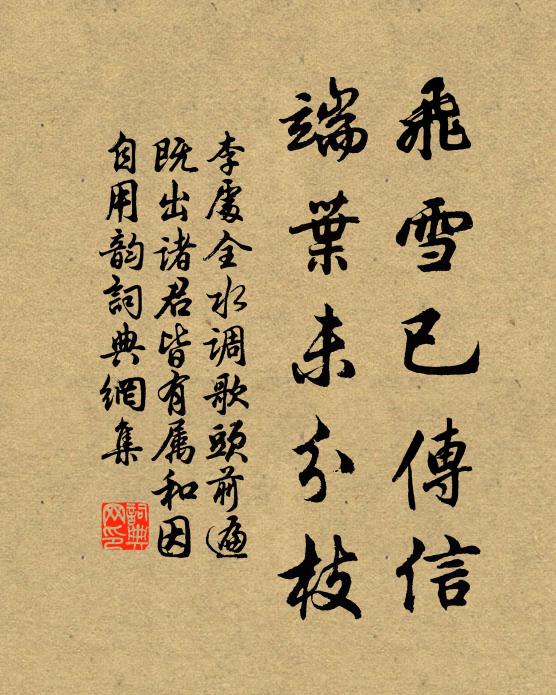 飛雪已傳信
端葉未分枝
李處全水调歌頭前遍
既出诸君皆有属和因
自用韵詞典網集
詞典網印